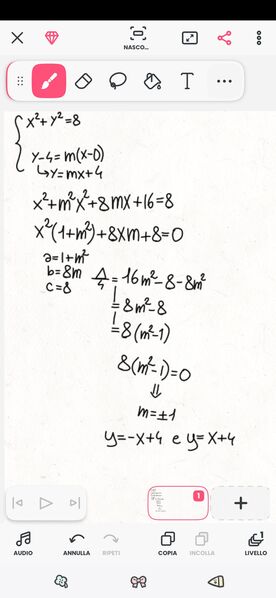 NASCO...
T
x²+y²=8
y-4=m(x-0)
↳y=mx+4
x²+m²x²+8mx+16=8
x²(1+m²)+8xm+8=0
a=1+m²
b=8m
c=8
Δ/4=16m²-8-8m²
=8m²-8
=8(m²-1)
8(m²-1)=0
⇓
m=±1
y=-x+4 e y=x+4
1
+
AUDIO
ANNULLA
RIPETI
COPIA
INCOLLA
LIVELLO